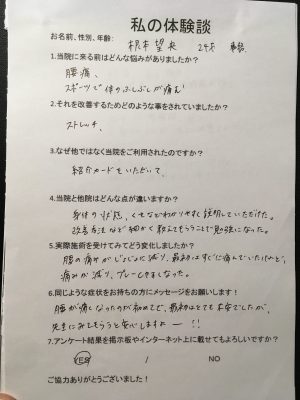 私の体験談
お名前、性別、年齢: 根本 望央 24才
1.当院に来る前はどんな悩みがありましたか?
腰痛、
スポーツで体のふしぶしが痛む
2.それを改善するためどのような事をされていましたか?
ストレッチ、
3.なぜ他ではなく当院をご利用されたのですか?
紹介カードをいただいて、
4.当院と他院はどんな点が違いますか?
身体の状態、くせなどわかりやすく説明していただけた。
改善方法など細かく教えてもらうことで勉強になった。
5.実際施術を受けてみてどう変化しましたか?
腰の痛みがじょじょに減り、最初はすぐに痛んでいたけれど、
痛みが減り、プレーしやすくなった。
6.同じような症状をお持ちの方にメッセージをお願いします!
腰が痛くなったのが初めてで、最初はとても不安でしたが、
先生にみてもらうと安心しますよー!!
7.アンケート結果を掲示板やインターネット上に載せてもよろしいですか?
YES / NO
ご協力ありがとうございました!